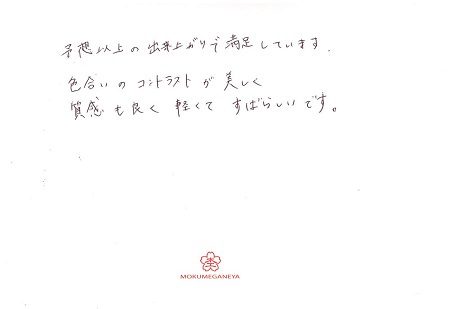 予想以上の出来上がりで満足しています.
色合いのコントラストが美しく
質感も良く 軽くて すばらしいです。
MOKUMEGANEYA